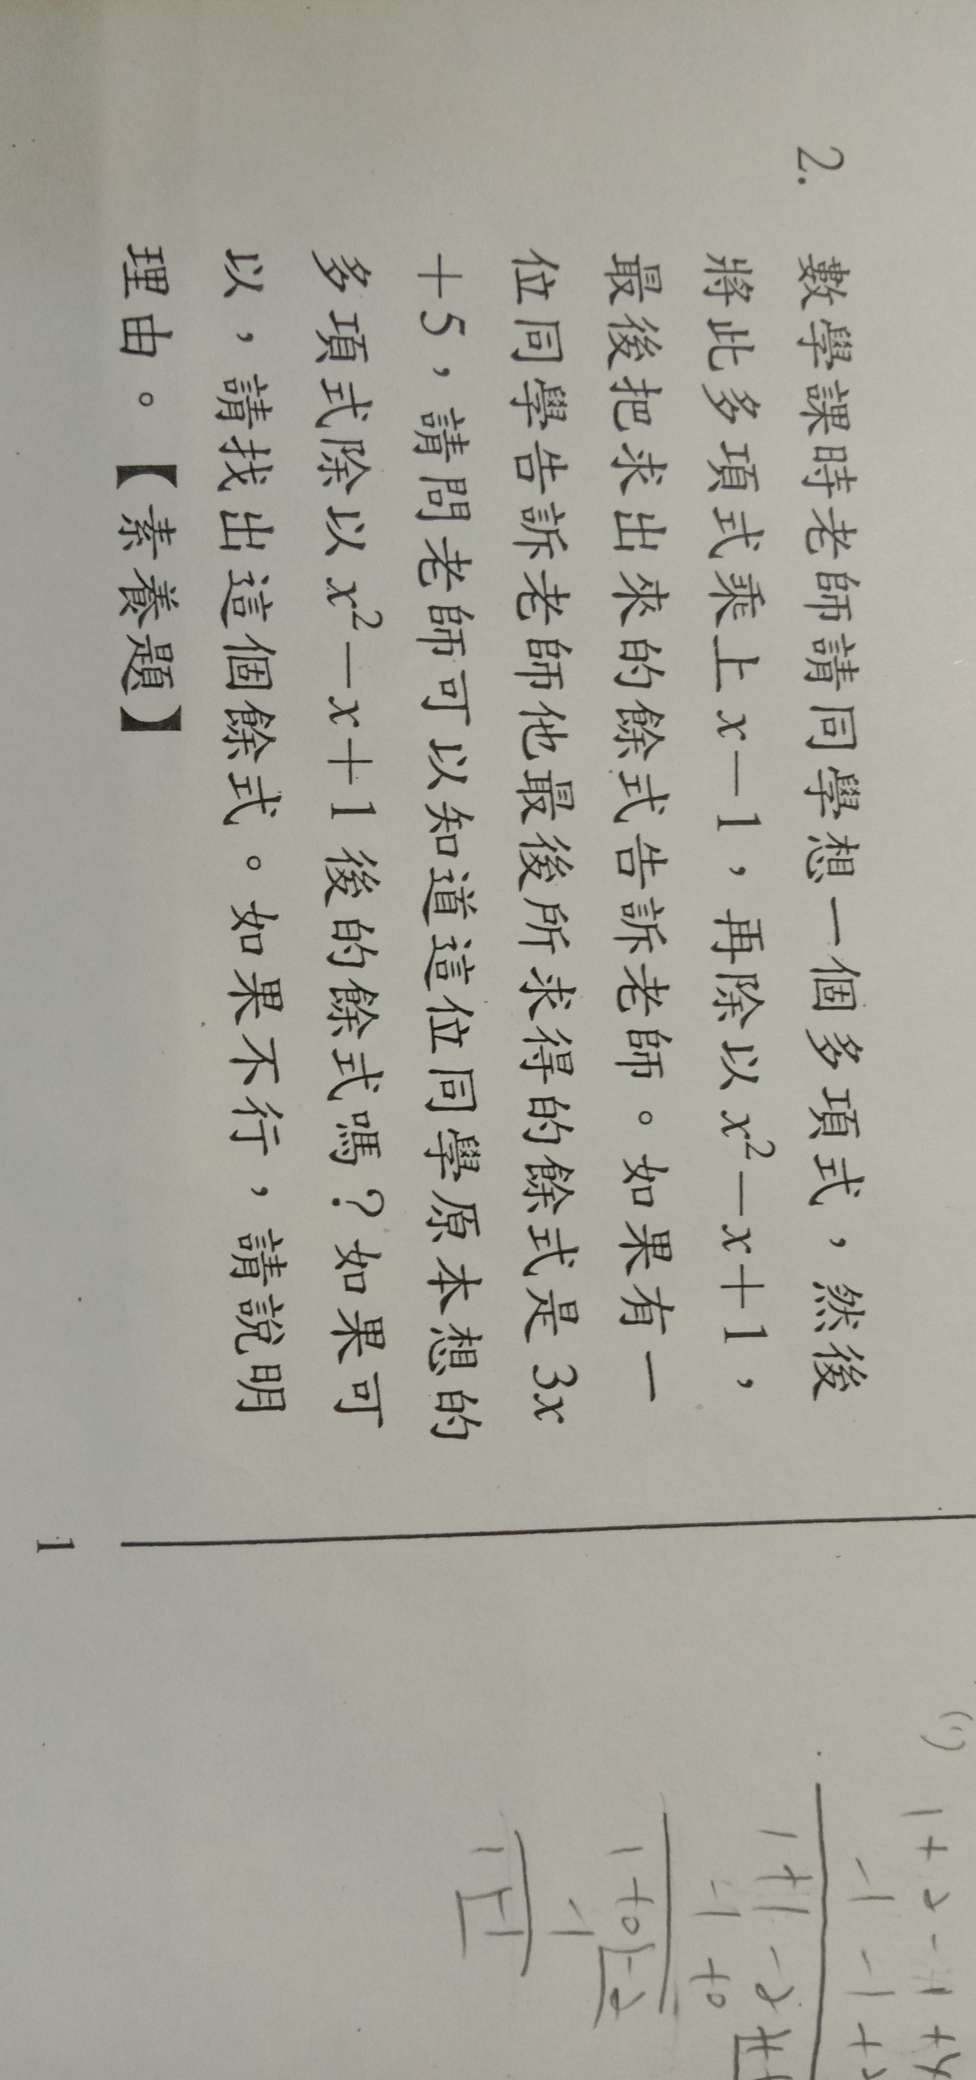 2. 數學課時老師請同學想一個多項式，然後
將此多項式乘上 x－1，再除以 x²－x＋1，
最後把求出來的餘式告訴老師。如果有一
位同學告訴老師他最後所求得的餘式是 3x
＋5，請問老師可以知道這位同學原本想的
多項式除以 x²－x＋1 後的餘式嗎？如果可
以，請找出這個餘式。如果不行，請說明
理由。【素養題】
1
(1)
1+2-1+4
-1-1+2
1+1-2
-1+0
1+0-2
-1
1-1